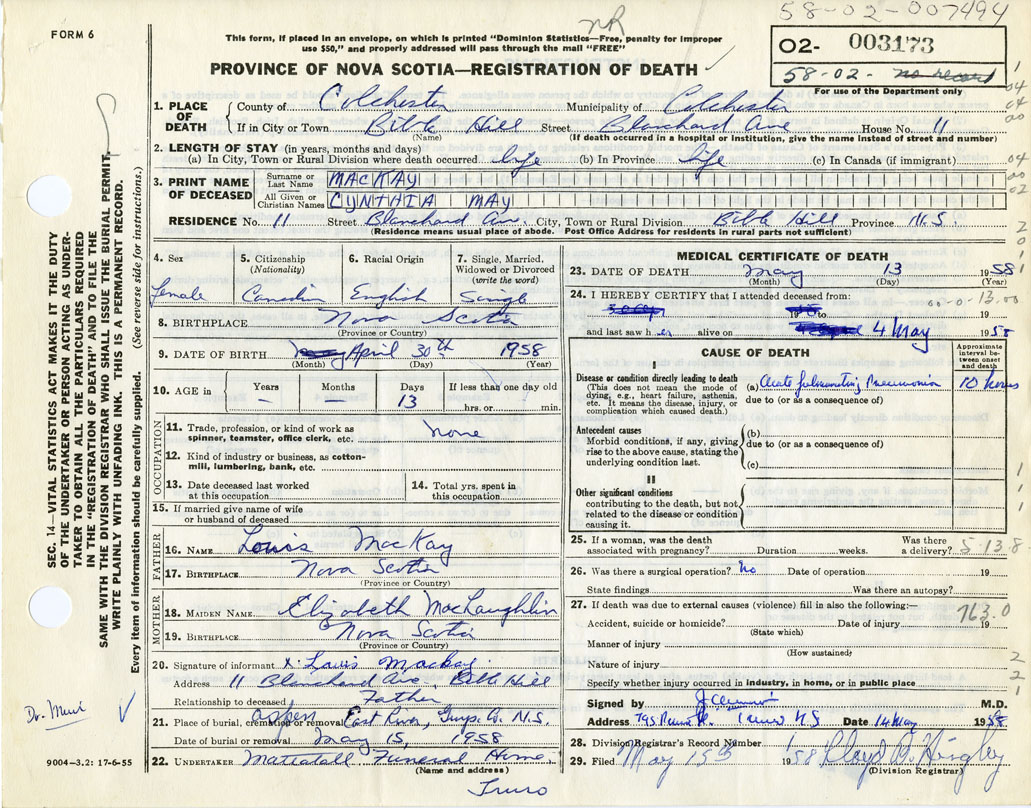 58-02-007494
nR
FORM 6
This form, if placed in an envelope, on which is printed "Dominion Statistics—Free, penalty for improper
use $50," and properly addressed will pass through the mail "FREE"
02- 003173
58-02- no record
For use of the Department only
PROVINCE OF NOVA SCOTIA—REGISTRATION OF DEATH
1. PLACE OF DEATH County of Colchester Municipality of Colchester
If in City or Town Bible Hill Street Blanchard Ave House No. 11
(Name) (If death occurred in a hospital or institution, give the name instead of street and number)
2. LENGTH OF STAY (in years, months and days)
(a) In City, Town or Rural Division where death occurred life (b) In Province life (c) In Canada (if immigrant)
3. PRINT NAME OF DECEASED Surname or Last Name MACKAY
All Given or Christian Names CYNTHIA MAY
RESIDENCE No. 11 Street Blanchard Ave. City, Town or Rural Division Bible Hill Province N.S
(Residence means usual place of abode. Post Office Address for residents in rural parts not sufficient)
4. Sex 5. Citizenship (Nationality) 6. Racial Origin 7. Single, Married, Widowed or Divorced (write the word)
female Canadian English Single
8. BIRTHPLACE Nova Scotia
(Province or Country)
9. DATE OF BIRTH April 30th 1958
(Month) (Day) (Year)
10. AGE in Years Months Days If less than one day old
– 13 hrs. or min.
OCCUPATION
11. Trade, profession, or kind of work as spinner, teamster, office clerk, etc. none
12. Kind of industry or business, as cotton-mill, lumbering, bank, etc.
13. Date deceased last worked at this occupation 14. Total yrs. spent in this occupation
15. If married give name of wife or husband of deceased
FATHER
16. NAME Louis MacKay
17. BIRTHPLACE Nova Scotia
(Province or Country)
MOTHER
18. MAIDEN NAME Elizabeth MacLaughlin
19. BIRTHPLACE Nova Scotia
(Province or Country)
20. Signature of informant x. Louis Mackay.
Address 11 Blanchard Ave., Bible Hill
Relationship to deceased Father
21. Place of burial, cremation or removal Aspen East River, Guys. Co. N.S.
Date of burial or removal May 15, 1958
22. UNDERTAKER Mattatall Funeral Home
(Name and address)
Truro
MEDICAL CERTIFICATE OF DEATH
23. DATE OF DEATH May 13 1958
(Month) (Day) (Year)
24. I HEREBY CERTIFY that I attended deceased from:
00-0-13.00
19 to 19
and last saw her alive on 4 May 1958
CAUSE OF DEATH Approximate interval between onset and death
I
Disease or condition directly leading to death
(This does not mean the mode of dying, e.g., heart failure, asthenia, etc. It means the disease, injury, or complication which caused death.)
(a) Acute fulminating Pneumonia 10 hours
due to (or as a consequence of)
Antecedent causes
Morbid conditions, if any, giving rise to the above cause, stating the underlying condition last.
(b)
due to (or as a consequence of)
(c)
II
Other significant conditions
contributing to the death, but not related to the disease or condition causing it.
25. If a woman, was the death associated with pregnancy? Duration weeks. Was there a delivery? 5-13-8
26. Was there a surgical operation? No Date of operation 19
State findings Was there an autopsy?
27. If death was due to external causes (violence) fill in also the following:—
763.0
Accident, suicide or homicide? Date of injury 19
(State which)
Manner of injury
(How sustained)
Nature of injury
Specify whether injury occurred in industry, in home, or in public place
Signed by M.D.
Address Truro N.S Date 14 May 1958
28. Division Registrar's Record Number
29. Filed May 15th 1958 Lloyd
(Division Registrar)
SEC. 14—VITAL STATISTICS ACT MAKES IT THE DUTY
OF THE UNDERTAKER OR PERSON ACTING AS UNDER-
TAKER TO OBTAIN ALL THE PARTICULARS REQUIRED
IN THE "REGISTRATION OF DEATH" AND TO FILE THE
SAME WITH THE DIVISION REGISTRAR WHO SHALL ISSUE THE BURIAL PERMIT.
WRITE PLAINLY WITH UNFADING INK. THIS IS A PERMANENT RECORD.
Every item of information should be carefully supplied. (See reverse side for instructions.)
Dr. Muir
9004-3.2: 17-6-55